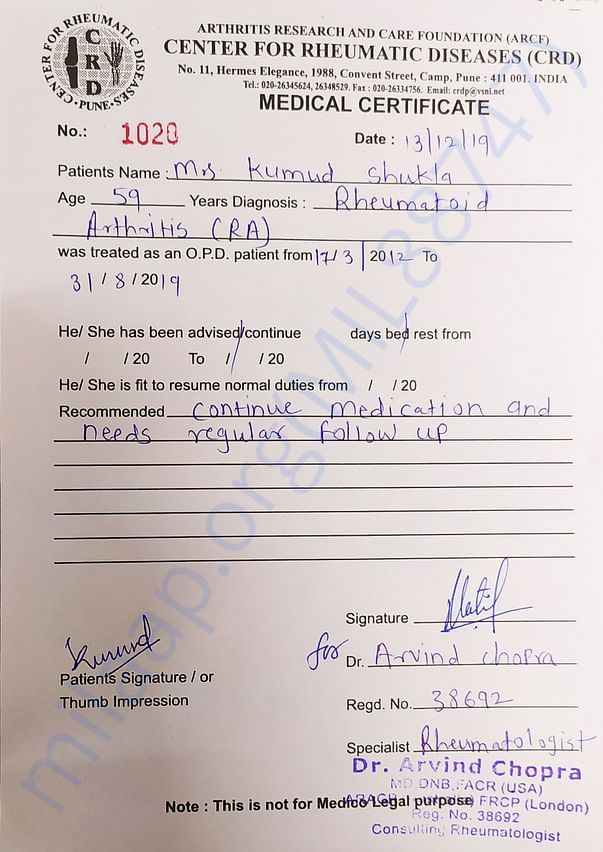 CENTER FOR RHEUMATIC DISEASES • PUNE •
CRD
ARTHRITIS RESEARCH AND CARE FOUNDATION (ARCF)
CENTER FOR RHEUMATIC DISEASES (CRD)
No. 11, Hermes Elegance, 1988, Convent Street, Camp, Pune : 411 001. INDIA
Tel.: 020-26345624, 26348529. Fax : 020-26334756. Email: crdp@vsnl.net
MEDICAL CERTIFICATE
No.: 1020 Date : 13/12/19
Patients Name : Mrs. Kumud Shukla
Age 59 Years Diagnosis : Rheumatoid
Arthritis (RA)
was treated as an O.P.D. patient from 17/3/2012 To
31/8/2019
He/ She has been advised/continue days bed rest from
/ /20 To / /20
He/ She is fit to resume normal duties from / /20
Recommended continue medication and
needs regular follow up
Signature
Kumud
for Dr. Arvind chopra
Patients Signature / or
Thumb Impression
Regd. No. 38692
Specialist Rheumatologist
Dr. Arvind Chopra
MD DNB, FACR (USA)
FRCP (London)
Note : This is not for Medico Legal purpose
Reg. No. 38692
Consulting Rheumatologist